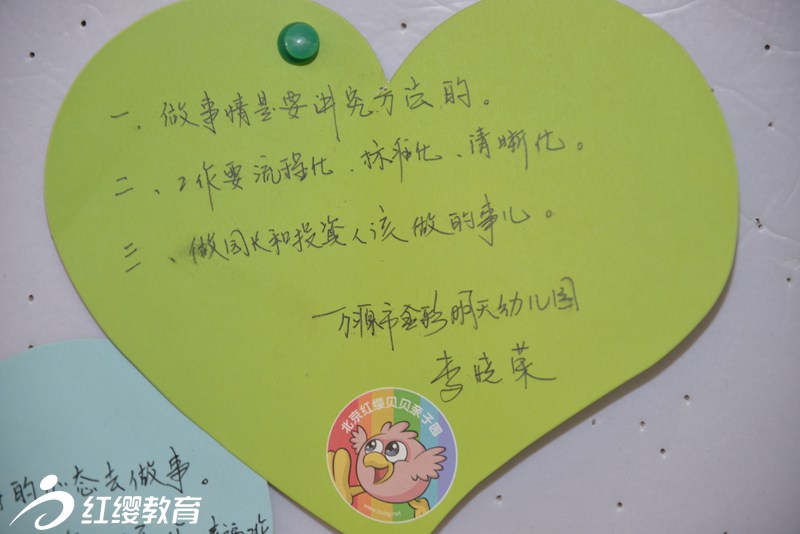 一、做事情是要讲究方法的。
二、工作要流程化、标准化、清晰化。
三、做园长和投资人该做的事儿。
万源市金彩明天幼儿园
李晓荣
北京红缨贝贝亲子园
的心态去做事。
红缨教育